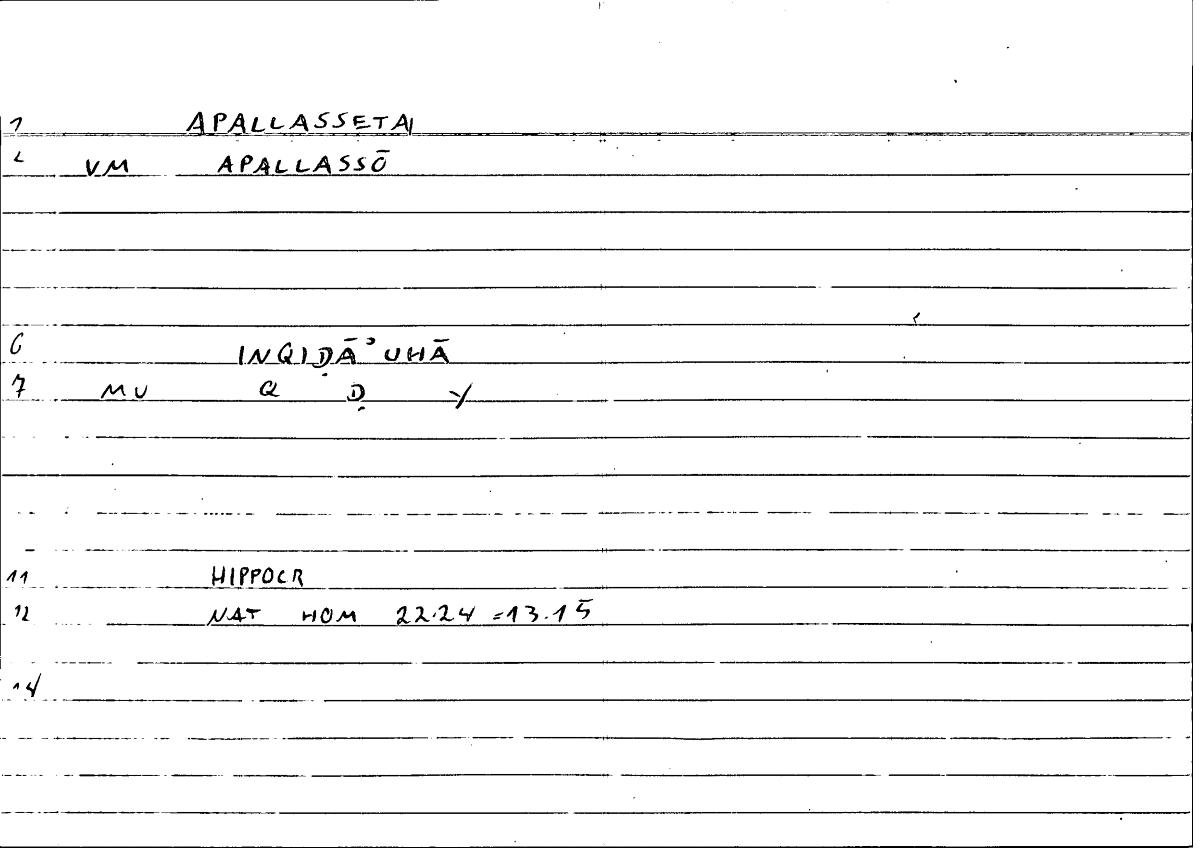 1 APALLASSETAI
2 VM APALLASSŌ
6 INQIḌĀʾUHĀ
7 MU Q Ḍ Y
11 HIPPOCR
12 NAT HOM 22.24 =13.15
14